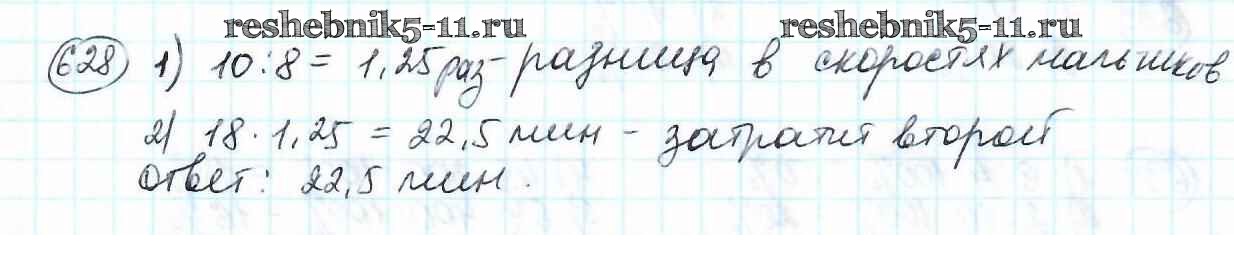 reshebnik5-11.ru reshebnik5-11.ru
628 1) 10:8 = 1,25 раз - разница в скоростях мальчиков
2) 18 · 1,25 = 22,5 мин - затратит второй
Ответ: 22,5 мин.